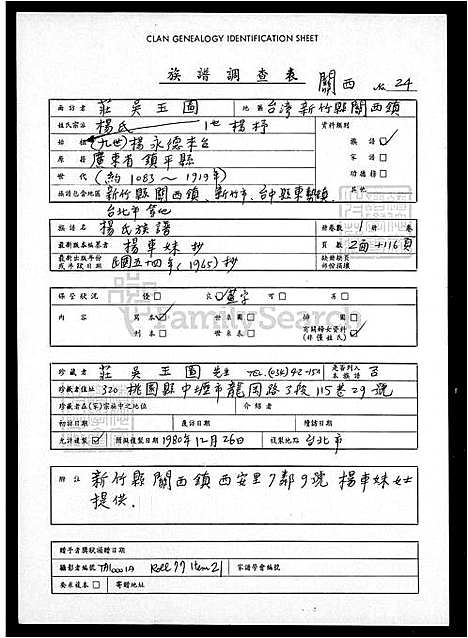 CLAN GENEALOGY IDENTIFICATION SHEET
族譜調查表 關西 No 24
面訪者 莊吳玉圖 地區 台灣新竹縣關西鎮
姓氏宗派 楊氏 1世 楊抒 資料類別
始祖 (九世)楊永德 族譜
原籍 廣東省鎮平縣 家譜
世代 (約1083~1919年) 功德榜
族譜包含地區 新竹縣關西鎮、新竹市、台中縣東勢鎮、 其他
台北市等地
族譜名 楊氏族譜 冊卷數 1 冊 卷
最新版本編纂者 楊車妹抄 頁數 2面+116頁
最新出版年份或手錄日期 民國五十四年(1965)抄 缺冊缺頁部份損壞
保管狀況 優 良 蓋字 可 劣
內容 寫本 世系圖 掃圖
刊本 世系表 有關婦女資料(非僅姓氏)
FamilySearch
珍藏者 莊吳玉圖先生 TEL.(034) 是否列入本族譜 否
珍藏者住址 320 桃園縣中壢市龍岡路3段115巷29號
珍藏者在(家)宗族中之地位 介紹者
初訪日期 復訪日期 續訪日期
允許複製 開拍複製日期 1980年12月26日 複製地點 台北市
附注 新竹縣關西鎮西安里7鄰9號楊車妹女士
提供.
贈予者獎狀頒贈日期
攝影者編號 Roll 77 Item 21 家譜學會編號
要求複本 寄贈地址